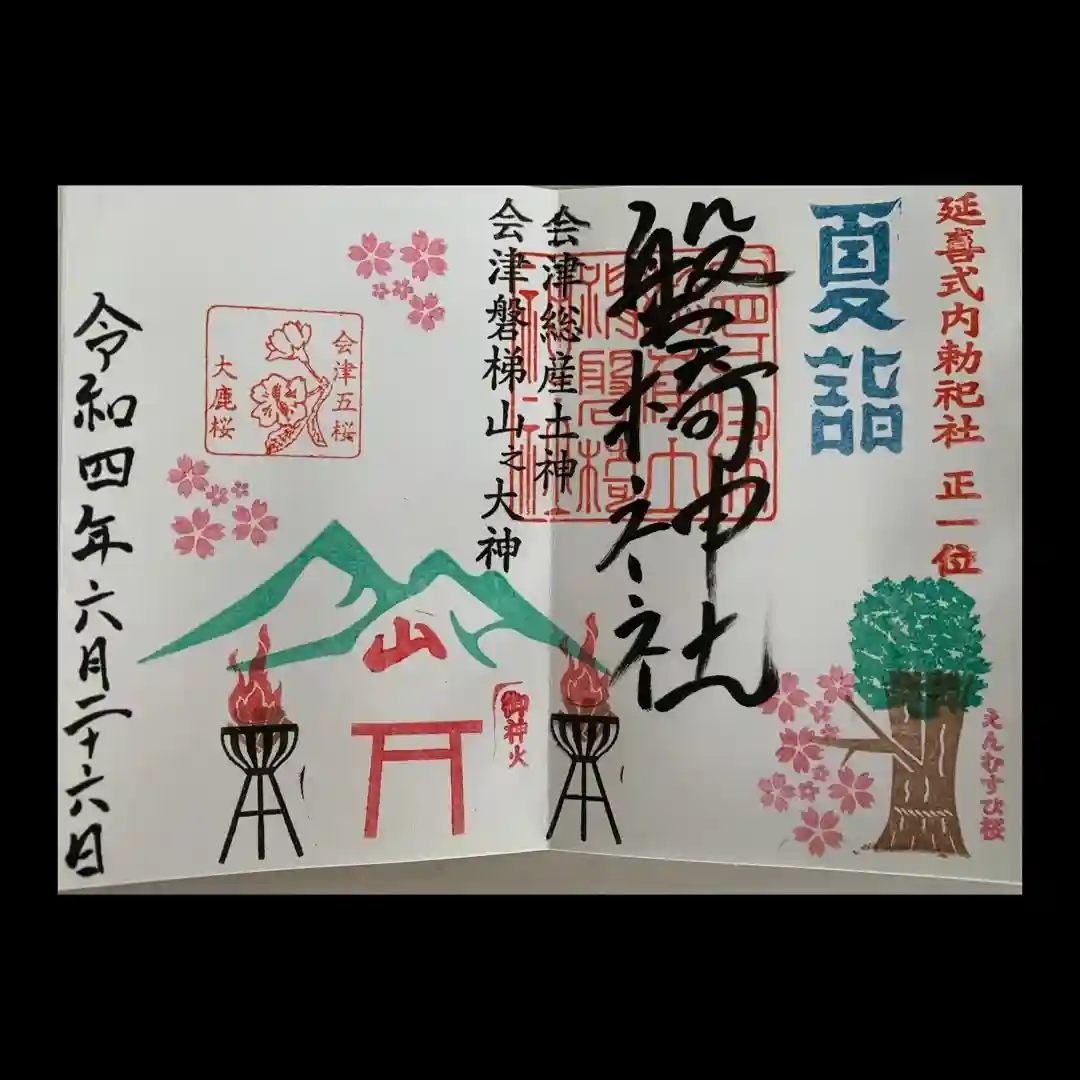 延喜式内勅祀社 正一位
夏詣
えんむすび桜
磐椅神社
会津総産土神
会津磐梯山之大神
御神火
山
会津五桜
大鹿桜
令和四年六月二十六日